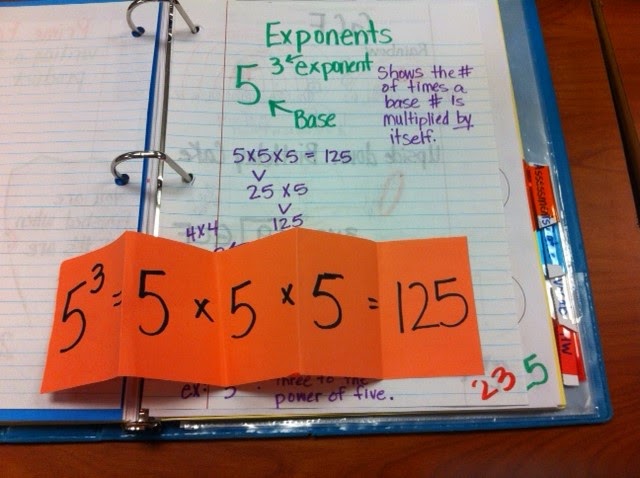 Exponents
5³ exponent
Base
Shows the #
of times a
base # is
multiplied by
itself.
5x5x5 = 125
25 x5
125
4x4
5³ = 5 x 5 x 5 = 125
ex:
three to the
power of five.
23 5
Assessments
HW